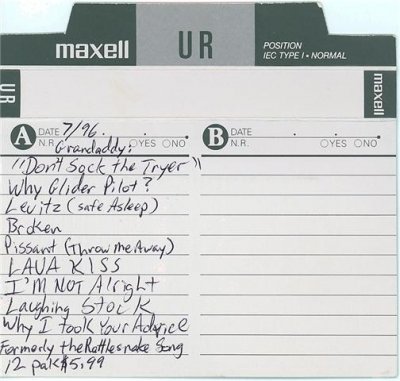 maxell UR POSITION
IEC TYPE I • NORMAL
UR maxell
A DATE 7/96 B DATE
N.R. YES NO N.R. YES NO
Grandaddy:
"Don't Sock the Tryer"
Why Glider Pilot?
Lewitz (safe Asleep)
Broken
Pissant (Throw me Away)
LAVA KISS
I'M NOT Alright
Laughing Stock
Why I took Your Advice
Formerly the Rattlesnake Song
12 pak $5.99